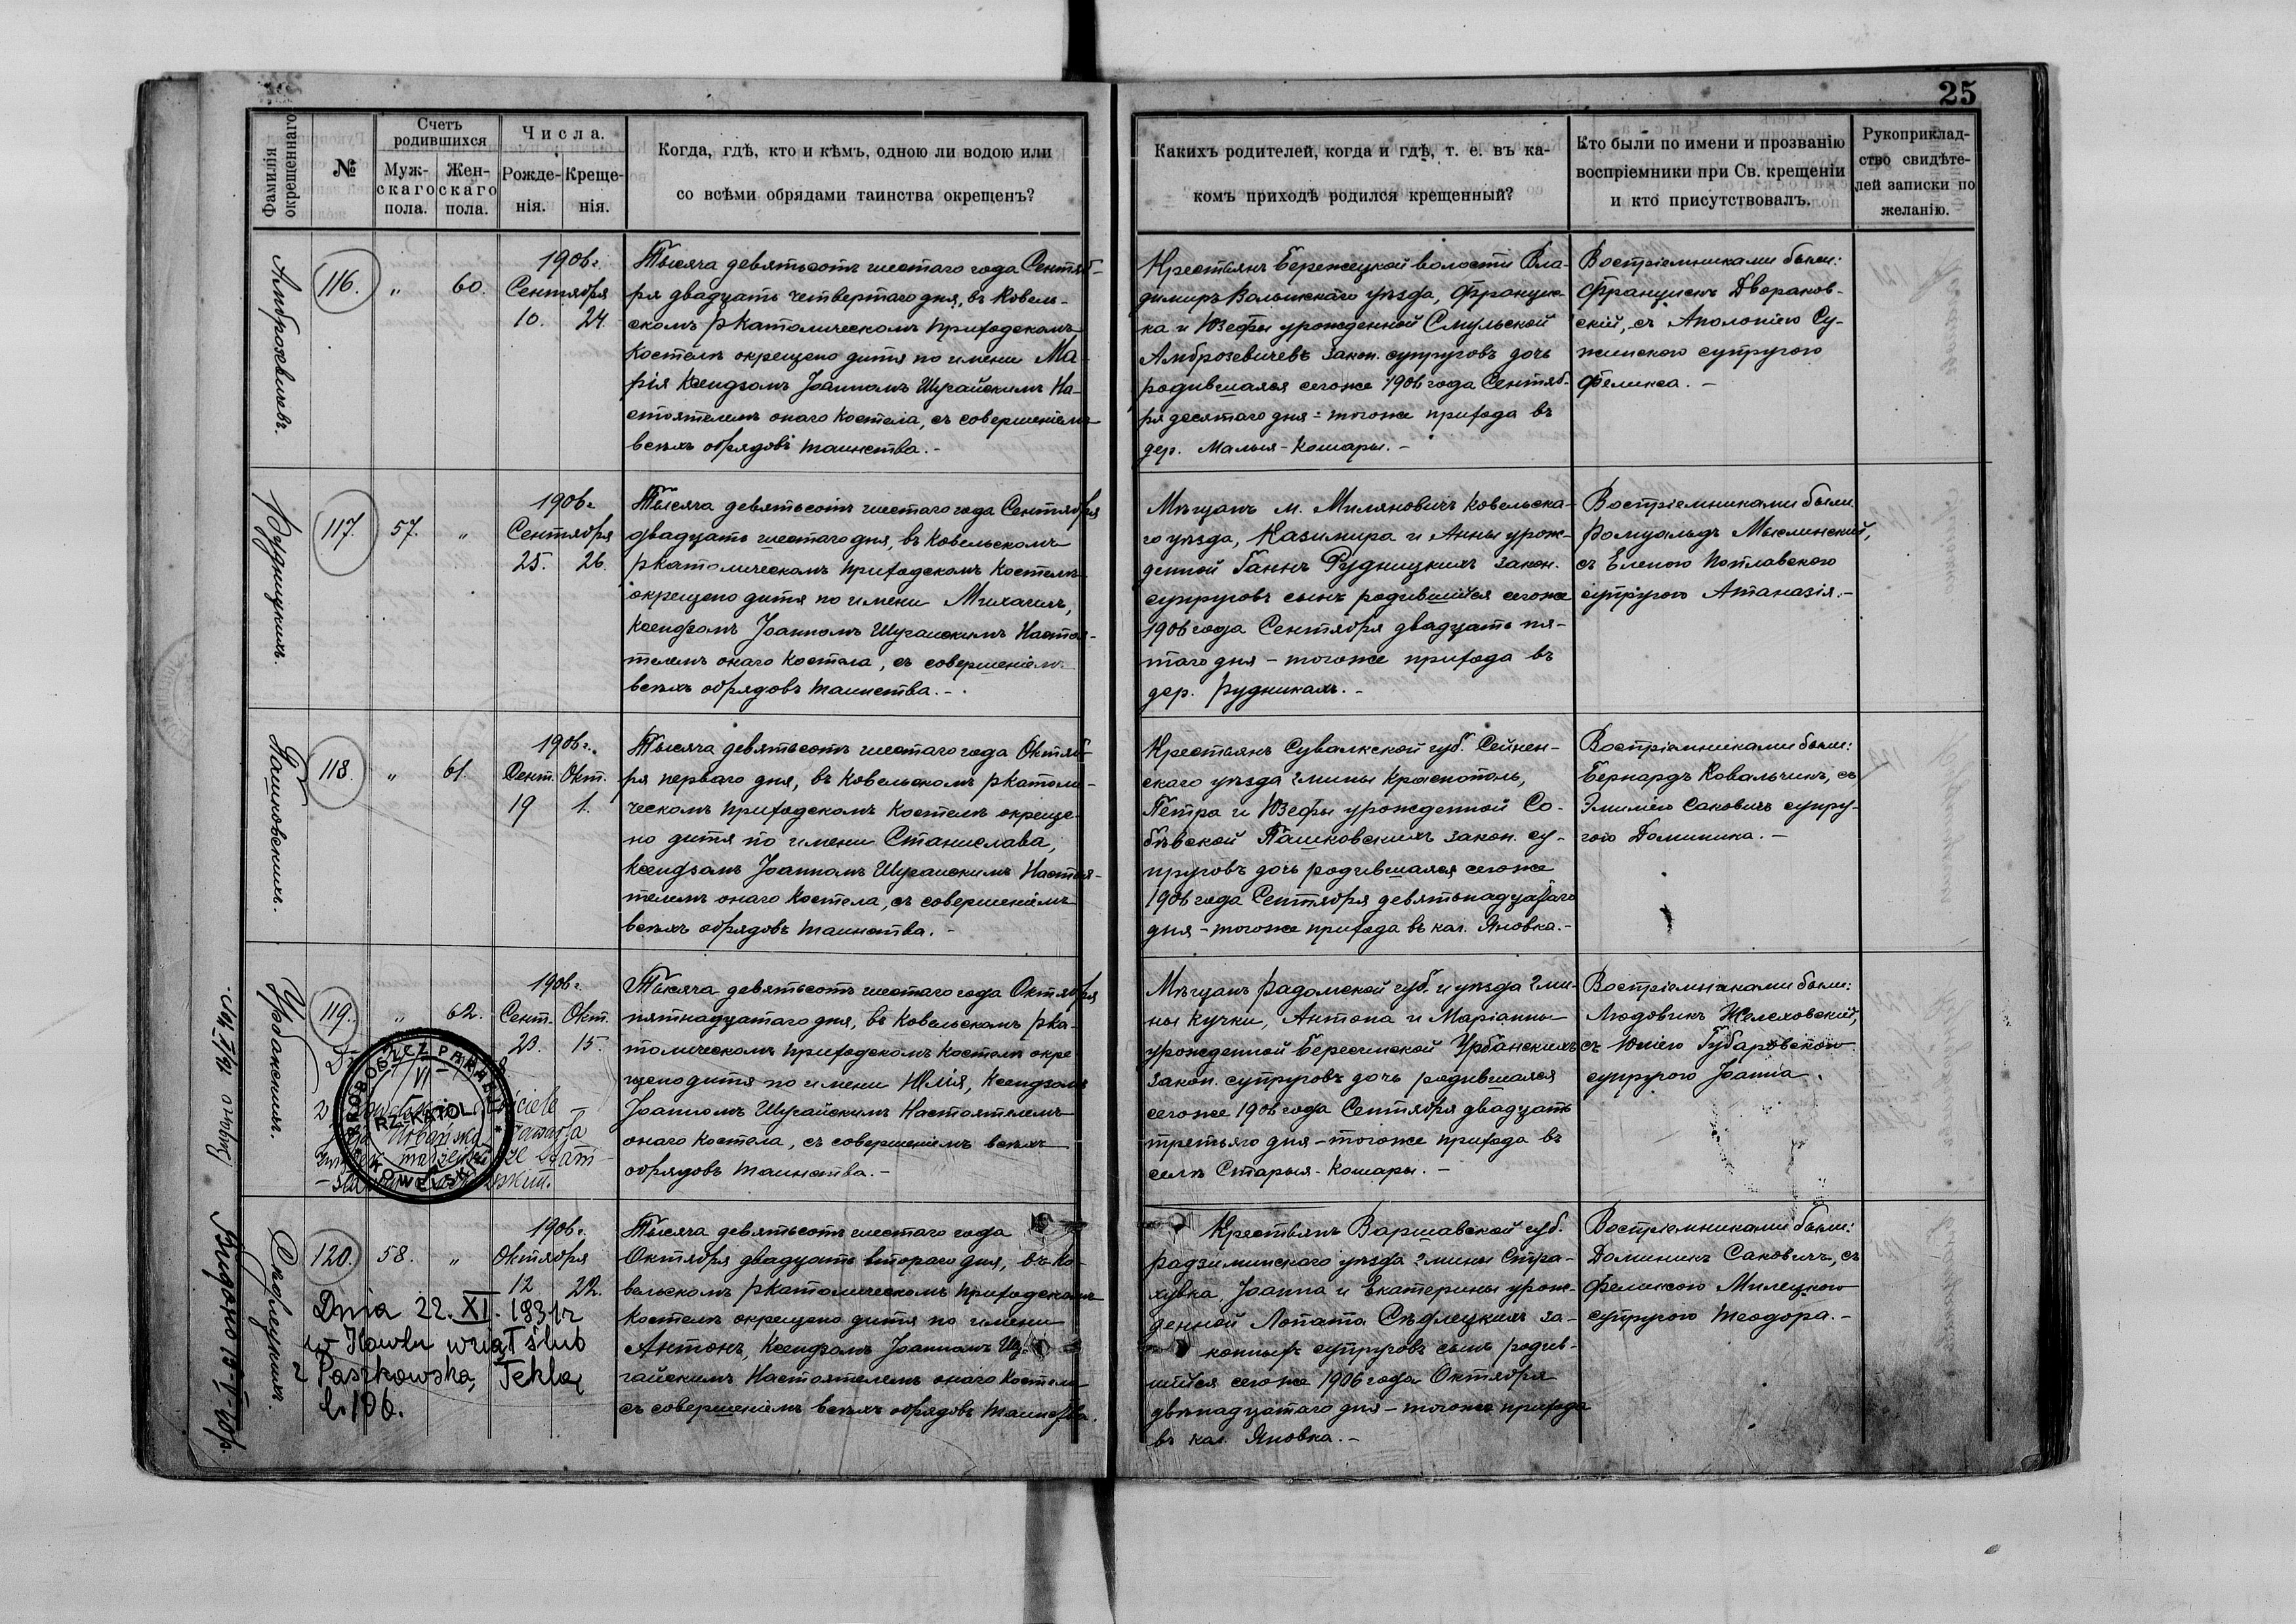 25
Фамилія окрещеннаго
№
Счетъ родившихся
Мужскаго пола.
Женскаго пола.
Числа.
Рожденія.
Крещенія.
Когда, гдѣ, кто и кѣмъ, одною ли водою или
со всѣми обрядами таинства окрещенъ?
Какихъ родителей, когда и гдѣ, т. е. въ ка-
комъ приходѣ родился крещенный?
Кто были по имени и прозванію
воспріемники при Св. крещеніи
и кто присутствовалъ.
Рукоприклад-
ство свидѣте-
лей записки по
желанію.
Амброжевичевъ.
116.
"
60.
1906 г.
Сентября
10. 24.
Тысяча девятьсотъ шестаго года Сентяб-
ря двадцать четвертаго дня, въ Ковель-
скомъ рКатолическомъ приходскомъ
Костелѣ окрещено дитя по имени Ма-
рія Ксендзомъ Іоанномъ Шугайскимъ На-
стоятелемъ онаго Костела, съ совершеніемъ
всѣхъ обрядовъ таинства. -
Крестьянъ Бережецкой волости Вла-
димиръ Волынскаго уѣзда, Францис-
ка и Юзефы урожденной Смульской
Амброзевичевъ закон. супруговъ дочь
родившаяся сегоже 1906 года Сентяб-
ря десятаго дня - тогоже прихода въ
дер. Малыя-Кошары. -
Воспріемниками были:
Францискъ Двораков-
скій, съ Аполоніею Су-
жинскою супругою
Феликса. -
Рудницкихъ.
117.
57.
"
1906 г.
Сентября
25. 26.
Тысяча девятьсотъ шестаго года Сентября
двадцать шестаго дня, въ Ковельскомъ
рКатолическомъ приходскомъ Костелѣ
окрещено дитя по имени Михаилъ,
Ксендзомъ Іоанномъ Шугайскимъ Настоя-
телемъ онаго Костела, съ совершеніемъ
всѣхъ обрядовъ таинства. -
Мѣщанъ м. Миляновичъ Ковельска-
го уѣзда, Казимира и Анны урож-
денной Ганнъ Рудницкихъ закон.
супруговъ сынъ родившійся сегоже
1906 года Сентября двадцать пя-
таго дня - тогоже прихода въ
дер. Рудникахъ. -
Воспріемниками были
Ромуальдъ Мыслинскій,
съ Еленою Поплавскою
супругою Атаназія. -
Пашковскихъ.
118.
"
61.
1906 г.
Сент. Окт.
19 1.
Тысяча девятьсотъ шестаго года Октяб-
ря перваго дня, въ Ковельскомъ рКатоли-
ческомъ приходскомъ Костелѣ окреще-
но дитя по имени Станислава,
Ксендзомъ Іоанномъ Шугайскимъ Настоя-
телемъ онаго Костела, съ совершеніемъ
всѣхъ обрядовъ таинства. -
Крестьянъ Сувалкской губ. Сейнен-
скаго уѣзда гмины Краснополь,
Петра и Юзефы урожденной Со-
бѣвской Пашковскихъ закон. су-
пруговъ дочь родившаяся сегоже
1906 года Сентября девятнадцатаго
дня - тогоже прихода въ кол. Яновка. -
Воспріемниками были:
Бернардъ Ковальчикъ, съ
Эмиліею Саковичъ супру-
гою Доминика. -
Урбанскихъ.
119.
"
62.
1906 г.
Сент. Окт.
23. 15.
Тысяча девятьсотъ шестаго года Октября
пятнадцатаго дня, въ Ковельскомъ рка-
толическомъ приходскомъ Костелѣ окре
щено дитя по имени Юлія, Ксендзомъ
Іоанномъ Шугайскимъ Настоятелемъ
онаго Костела, съ совершеніемъ всѣхъ
обрядовъ таинства. -
Мѣщанъ Радомской губ. и уѣзда гми-
ны Кучки, Антона и Маріанны
урожденной Бересинской Урбанскихъ
закон. супруговъ дочь родившаяся
сегоже 1906 года Сентября двадцать
третьяго дня - тогоже прихода въ
селѣ Старыя-Кошары. -
Воспріемниками были:
Людовикъ Желеховскій,
съ Юліею Губаровскою
супругою Іоанна.
PROBOSZCZ PARAFJI
RZ.-KATOL
Urbańska zawarła
Выдано 10-
120.
58.
"
1906 г.
Октября
12 22.
Тысяча девятьсотъ шестаго года
Октября двадцать втораго дня, въ Ко-
вельскомъ рКатолическомъ приходскомъ
Костелѣ окрещено дитя по имени
Антонъ, Ксендзомъ Іоанномъ Шу-
гайскимъ Настоятелемъ онаго Костела
съ совершеніемъ всѣхъ обрядовъ таинства.
Крестьянъ Варшавской губ.
Радзиминскаго уѣзда гмины Стра-
хувка, Іоанна и Екатерины урож-
денной Лопата Сѣдлецкихъ за-
конныхъ супруговъ сынъ родив-
шійся сегоже 1906 года Октября
двѣнадцатаго дня - тогоже прихода
въ кол. Яновка. -
Воспріемниками были:
Доминикъ Саковичъ, съ
Феликсою Милецкою
супругою Теодора. -
Dnia 22. XI. 1931 r
w Kowlu wziął ślub
z Paszkowską, Teklą
L. 106.